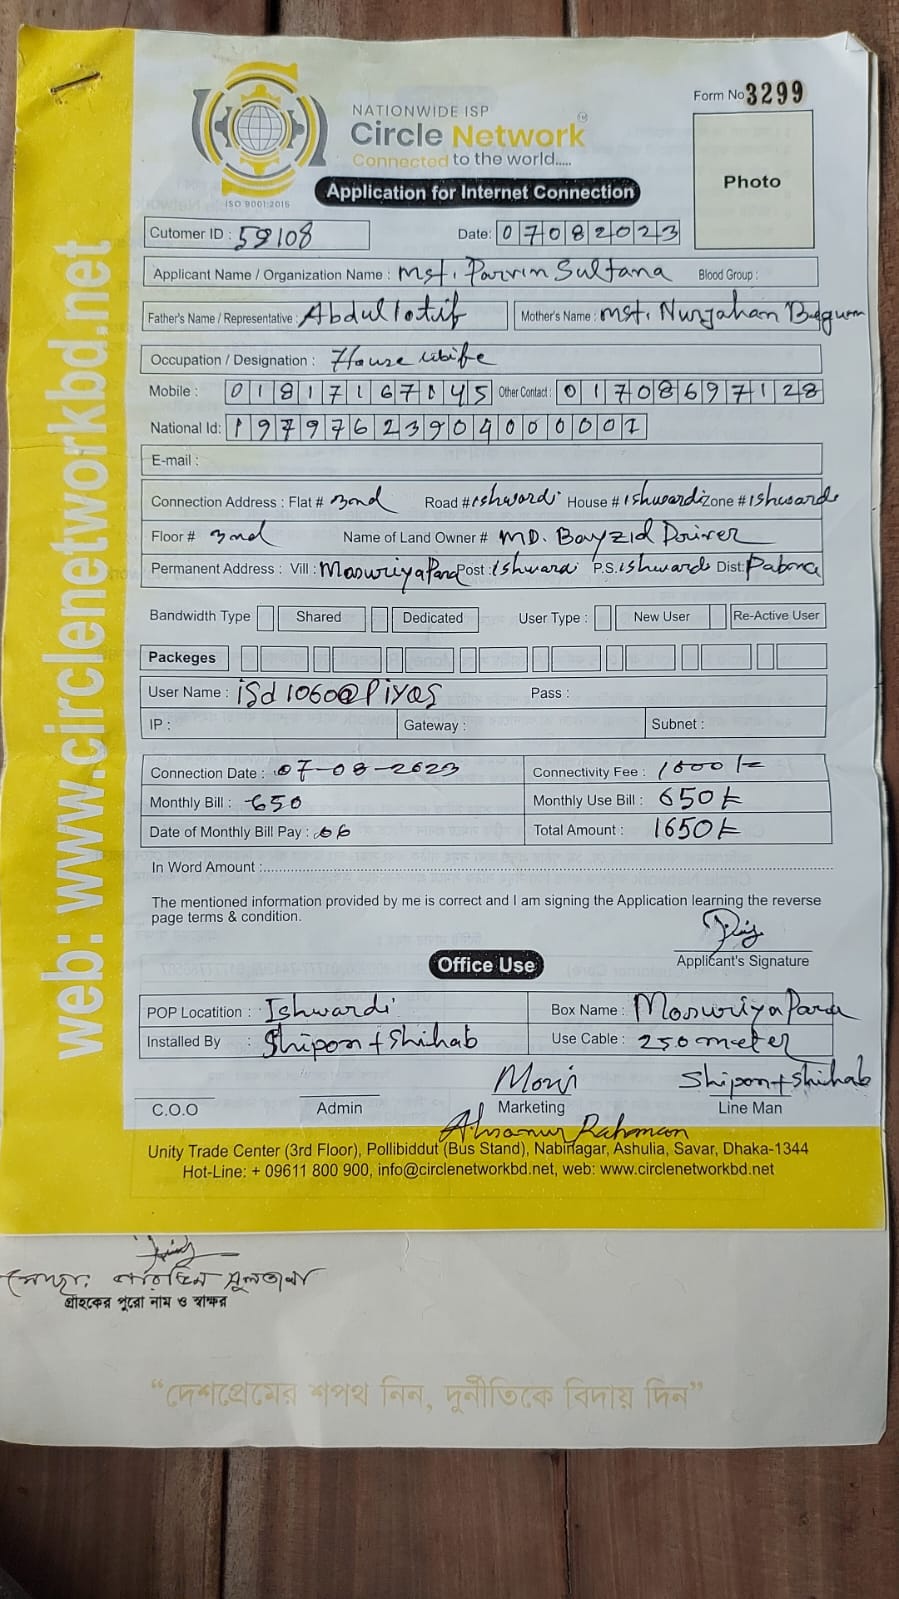 Form No 3299
NATIONWIDE ISP
Circle Network
Connected to the world.....
ISO 9001:2015
Photo
Application for Internet Connection
web: www.circlenetworkbd.net
Cutomer ID : 59108 Date: 07082023
Applicant Name / Organization Name : Mst. Parvin Sultana Blood Group :
Father's Name / Representative : Abdul lotif Mother's Name : mst. Nurjahan Beguum
Occupation / Designation : House wife
Mobile : 01817167145 Other Contact : 01708697128
National Id: 19797623904000001
E-mail :
Connection Address : Flat # 2nd Road # ishwardi House # ishwardi Zone # ishwardi
Floor # 2nd Name of Land Owner # MD. Bayzid Driver
Permanent Address : Vill : MasuriyaPara Post : ishwardi P.S. ishwardi Dist: Pabna
Bandwidth Type Shared Dedicated User Type : New User Re-Active User
Packeges
User Name : isd1060@Piyas Pass :
IP : Gateway : Subnet :
Connection Date : 07-08-2023 Connectivity Fee : 1000/=
Monthly Bill : 650 Monthly Use Bill : 650
Date of Monthly Bill Pay : 06 Total Amount : 1650
In Word Amount :
The mentioned information provided by me is correct and I am signing the Application learning the reverse
page terms & condition.
Applicant's Signature
Office Use
POP Locatition : Ishwardi Box Name : MasuriyaPara
Installed By : Shipon + Shihab Use Cable : 250 meter
Shipon + Shihab
C.O.O Admin Marketing Line Man
Rahman
Unity Trade Center (3rd Floor), Pollibiddut (Bus Stand), Nabinagar, Ashulia, Savar, Dhaka-1344
Hot-Line: + 09611 800 900, info@circlenetworkbd.net, web: www.circlenetworkbd.net
মোছা: পারভিন সুলতানা
গ্রাহকের পুরো নাম ও স্বাক্ষর
“দেশপ্রেমের শপথ নিন, দুর্নীতিকে বিদায় দিন”